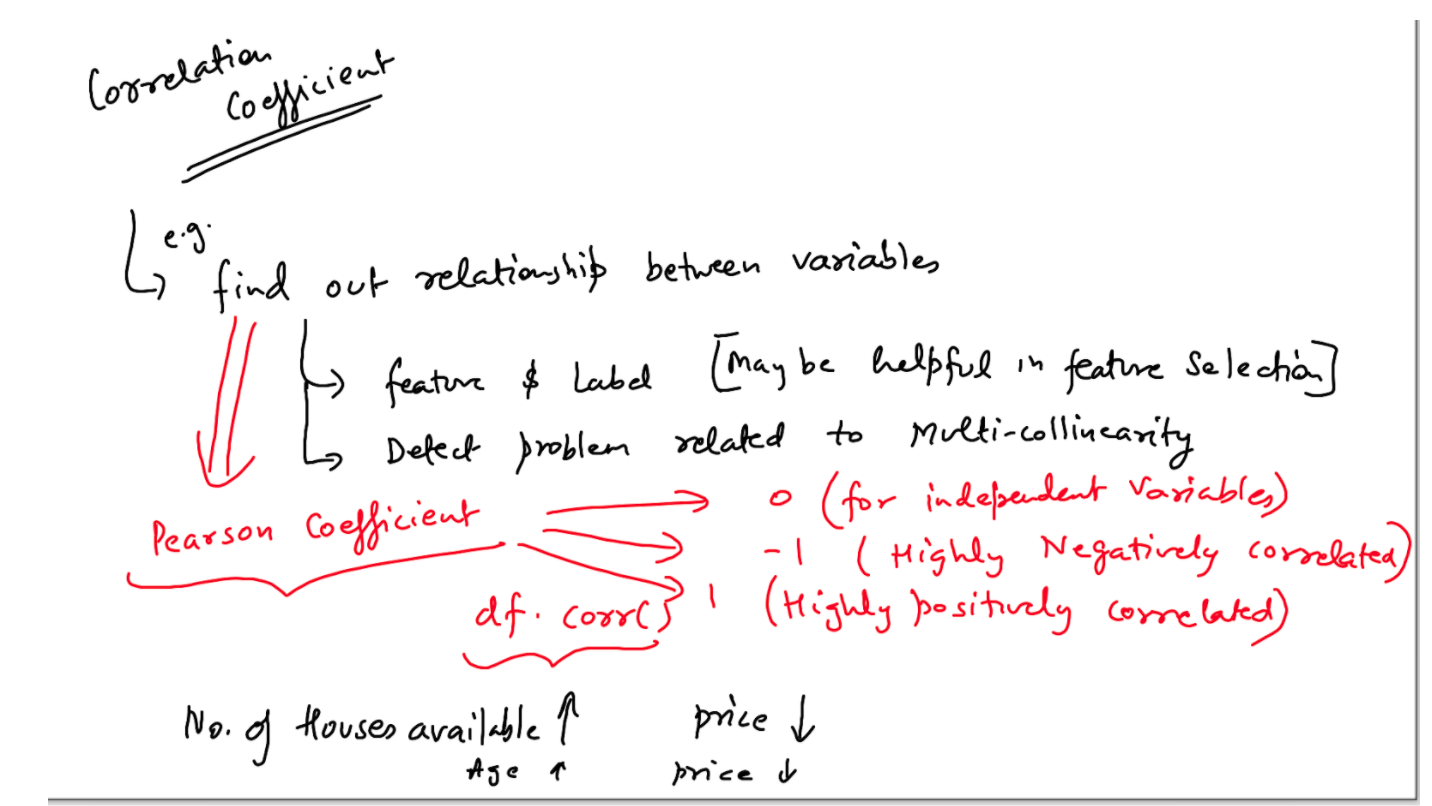 Correlation
Coefficient
e.g.
find out relationship between variables
→ feature & Label [May be helpful in feature Selection]
→ Detect problem related to Multi-collinearity
Pearson Coefficient → 0 (for independent Variables)
→ -1 (Highly Negatively correlated)
df.corr() → 1 (Highly positively correlated)
No. of Houses available ↑ price ↓
Age ↑ price ↓